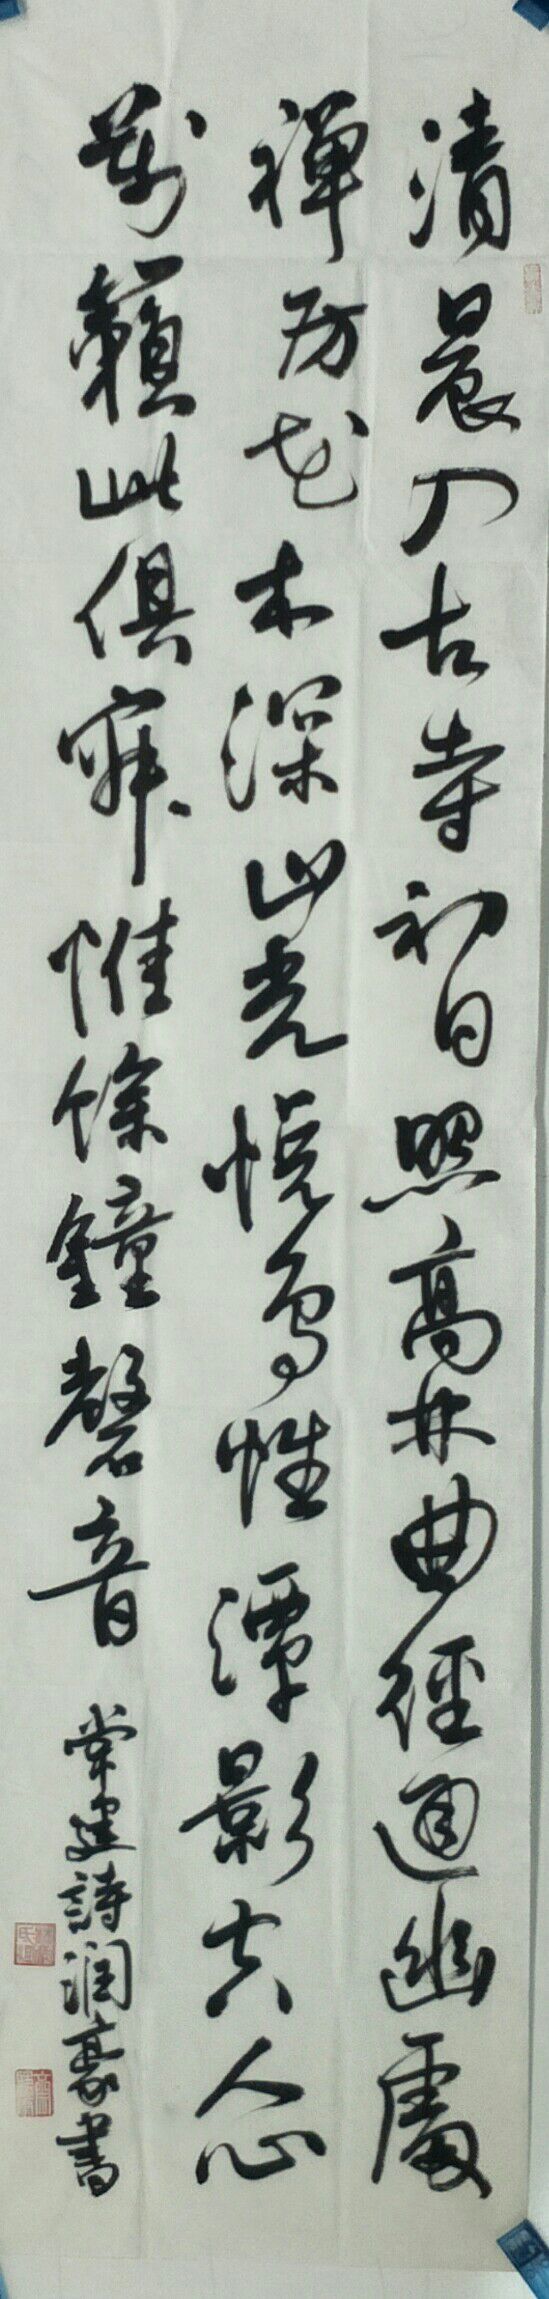 清晨入古寺初日照高林曲徑通幽處
禅房花木深山光悦鸟性潭影空人心
萬籟此俱寂惟餘鐘磬音
常建詩润豪書